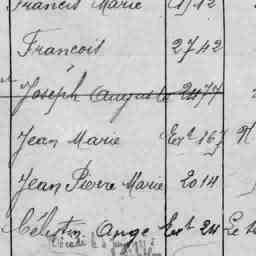 Francis Marie 1712
François 2742
Joseph August 2477
Jean Marie Ext 167
Jean Pierre Marie 2014
Célestin Ange Ext 24 Le
Décédé le